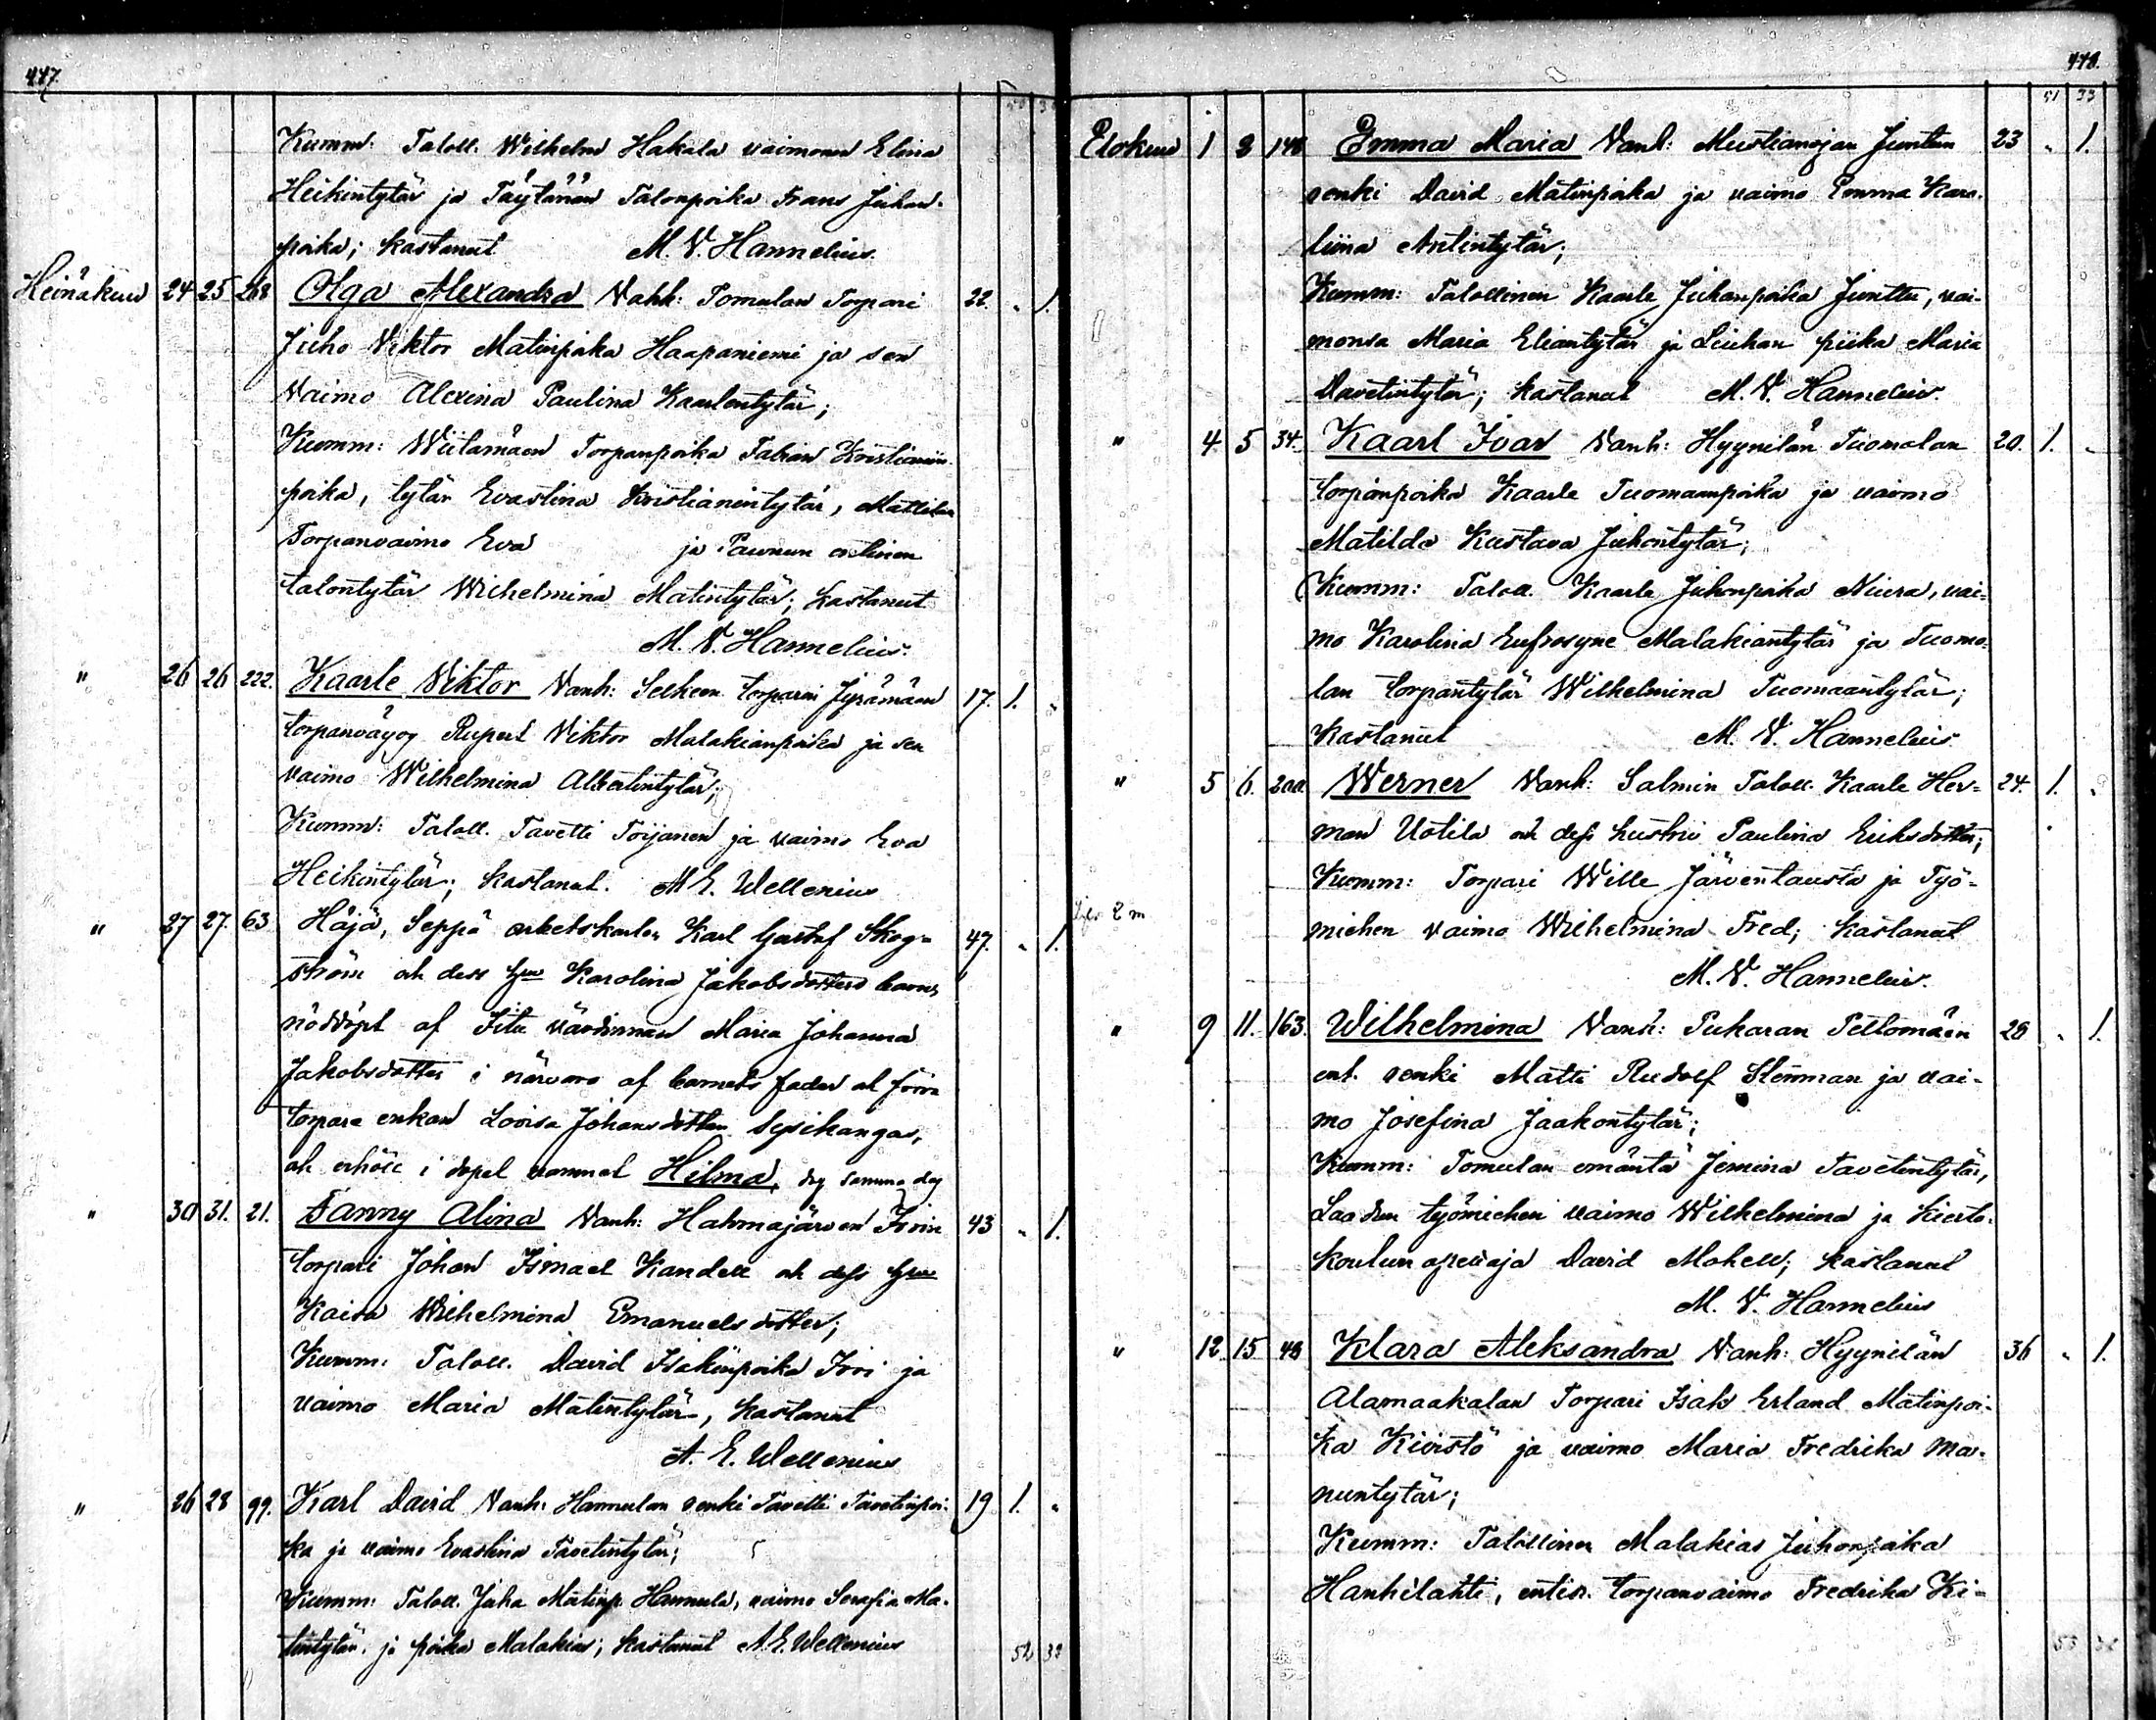 447.
Kumm: Taloll. Wilhelm Hakala vaimonen Elina
Heikintytär ja Täytärään Talonpoika Frans Juhan-
poika; kastanut M. V. Hannelius.
Heinäkuu 24 25 268 Olga Alexandra Vanh: Tomulan Torpari 22. " 1.
Juho Viktor Matinpoika Haapaniemi ja sen
Vaimo Alexina Paulina Kaarlentytär;
Kumm: Wiitamäen Torpanpoika Fabian Kristianin-
poika, tytär Evastina Kristianintytär, Mattilan
Torpanvaimo Eva ja Paunun entinen
talontytär Wilhelmina Matintytär; kastanut
M. V. Hannelius.
" 26 26 222. Kaarle Viktor Vanh: Selkeen torpari Jyrämäen 17. 1. "
torpanväyry Rupert Viktor Malakianpoika ja sen
vaimo Wilhelmina Albertintytär;
Kumm: Taloll. Tavetti Toijanen ja vaimo Eva
Heikintytär; kastanut. A. E. Wellenius
" 27 27. 63 Häjä, Seppä arbetskarlen Karl Gustaf Skog- 47. " 1.
ström och dess hu Karolina Jakobsdotters barn,
nöddöpt af Fitu värdinnan Maria Johanna
Jakobsdotter i närvaro af barnets fader och förra
torpare enkan Lovisa Johansdotter Sysikangas,
och erhöll i dopet namnet Hilma, dog samma dag
" 30 31. 21. Fanny Alina Vanh: Hahmajärven Iivin 43 " 1.
torpari Johan Ismael Kandell och dess hu
Kaisa Wilhelmina Emanuelsdotter;
Kumm: Taloll. David Isakinpoika Iivi ja
vaimo Maria Matintytär, kastanut
A. E. Wellenius
" 26 28 99. Karl David Vanh: Hannulan renki Tavetti Tavetinpoi- 19 1. "
ka ja vaimo Evastina Tavetintytär;
Kumm: Taloll. Juha Matinp. Hannula, vaimo Serafia Ma-
tintytär ja poika Malakias; kastanut A. E. Wellenius
52 32
448.
51 33
Elokuu 1 3 148 Emma Maria Vanh: Mustianojan Juntun 23 " 1.
renki David Matinpoika ja vaimo Emma Karo-
liina Antintytär;
Kumm: Talollinen Kaarle Juhanpoika Junttu, vai-
monsa Maria Eliantytär ja Liuhan piika Maria
Davetintytär; kastanut M. V. Hannelius.
" 4 5 34. Kaarl Ivar Vanh: Hyynilän Tuomolan 20. 1. "
torpanpoika Kaarle Tuomaanpoika ja vaimo
Matilda Kustava Juhontytär;
Kumm: Taloll. Kaarle Juhonpoika Niura, vai-
mo Karolina Eufrosyne Malakiantytär ja Tuomo-
lan torpantytär Wilhelmina Tuomaantytär;
Kastanut M. V. Hannelius
" 5 6. 200. Werner Vanh: Salmin Taloll. Kaarle Her- 24. 1. "
man Uotila och dess hustru Paulina Eriksdotter;
Kumm: Torpari Wille Järventausta ja Työ-
miehen vaimo Wilhelmina Fred; kastanut
M. V. Hannelius.
" 9 11. 163. Wilhelmina Vanh: Pukaran Peltomäen 28 " 1.
ent. renki Matti Rudolf Stenman ja vai-
mo Josefina Jaakontytär;
Kumm: Tomulan emäntä Jemina Tavetintytär,
Laadun työmiehen vaimo Wilhelmina ja Kierto-
koulun opettaja David Mohell; kastanut
M. V. Hannelius
" 12 15 48 Klara Aleksandra Vanh: Hyynilän 36 " 1.
Alamaakalan Torpari Isak Erland Matinpoi-
ka Kivistö ja vaimo Maria Fredrika Ma-
nuntytär;
Kumm: Talollinen Malakias Juhonpoika
Hanhilahti, entin. torpanvaimo Fredrika Ki-